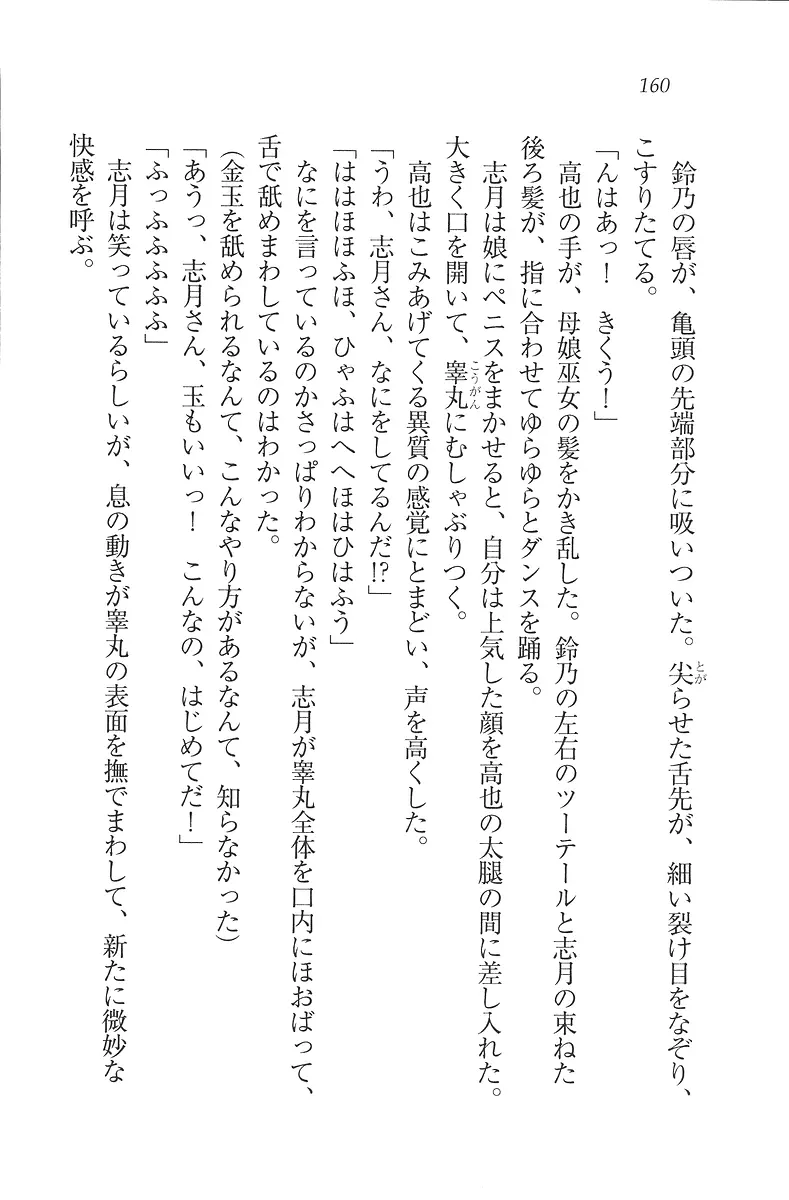 160
鈴乃の唇が、亀頭の先端部分に吸いついた。尖らせた舌先が、細い裂け目をなぞり、
とが
こすりたてる。
「んはあっ！　きくう！」
高也の手が、母娘巫女の髪をかき乱した。鈴乃の左右のツーテールと志月の束ねた
後ろ髪が、指に合わせてゆらゆらとダンスを踊る。
志月は娘にペニスをまかせると、自分は上気した顔を高也の太腿の間に差し入れた。
大きく口を開いて、睾丸にむしゃぶりつく。
こうがん
高也はこみあげてくる異質の感覚にとまどい、声を高くした。
「うわ、志月さん、なにをしてるんだ!?」
「ははほほふほ、ひゃふはへへほはひはふう」
なにを言っているのかさっぱりわからないが、志月が睾丸全体を口内にほおばって、
舌で舐めまわしているのはわかった。
（金玉を舐められるなんて、こんなやり方があるなんて、知らなかった）
「あうっ、志月さん、玉もいいっ！　こんなの、はじめてだ！」
「ふっふふふふふ」
志月は笑っているらしいが、息の動きが睾丸の表面を撫でまわして、新たに微妙な
快感を呼ぶ。